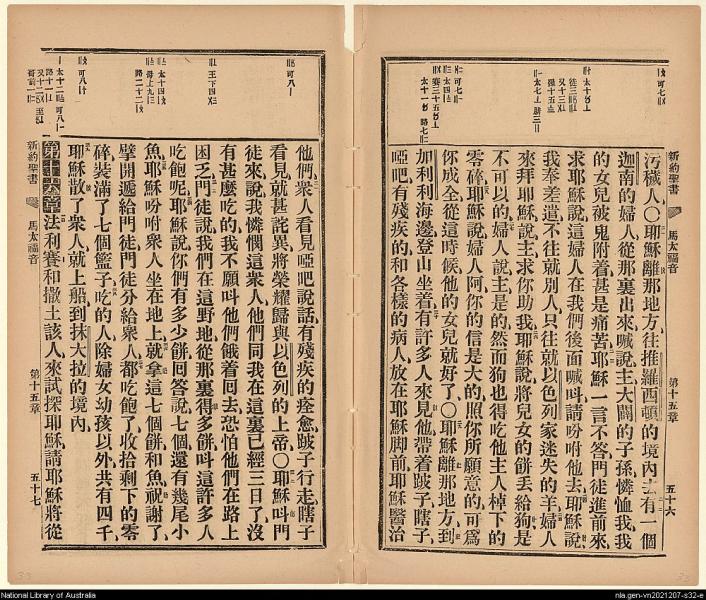 新約聖書
馬太福音
第十五章
五十六
汚穢人〇耶穌離那地方往推羅西頓的境內去有一個
迦南的婦人從那裏出來喊說主大闢的子孫憐恤我我
的女兒被鬼附着甚是痛苦耶穌一言不答門徒進前來
求耶穌說這婦人在我們後面喊呌請吩咐他去耶穌說
我奉差遣不往就別人只往就以色列家迷失的羊婦人
來拜耶穌說主求你助我耶穌說將兒女的餅丟給狗是
不可以的婦人說主是的然而狗也得吃他主人棹下的
零碎耶穌說婦人阿你的信是大的照你所願意的可爲
你成全從這時候他的女兒就好了〇耶穌離那地方到
加利利海邊登山坐着有許多人來見他帶着跛子瞎子
啞吧有殘疾的和各樣的病人放在耶穌脚前耶穌醫治
他們衆人看見啞吧說話有殘疾的痊愈跛子行走瞎子
看見就甚詫異將榮耀歸與以色列的上帝〇耶穌呌門
徒來說我憐憫這衆人他們同我在這裏已經三日了沒
有甚麼吃的我不願呌他們餓着回去恐怕他們在路上
困乏門徒說我們在這野地從那裏得多餅呌這許多人
吃飽呢耶穌說你們有多少餅回答說七個還有幾尾小
魚耶穌吩咐衆人坐在地上就拿這七個餅和魚祝謝了
擘開遞給門徒門徒分給衆人都吃飽了收拾剩下的零
碎裝滿了七個籃子吃的人除婦女幼孩以外共有四千
耶穌散了衆人就上船到抹大拉的境內
第十六章法利賽和撒土該人來試探耶穌請耶穌將從
新約聖書
馬太福音
第十五章
五十七
National Library of Australia
nla.gen-vn2021207-s32-e